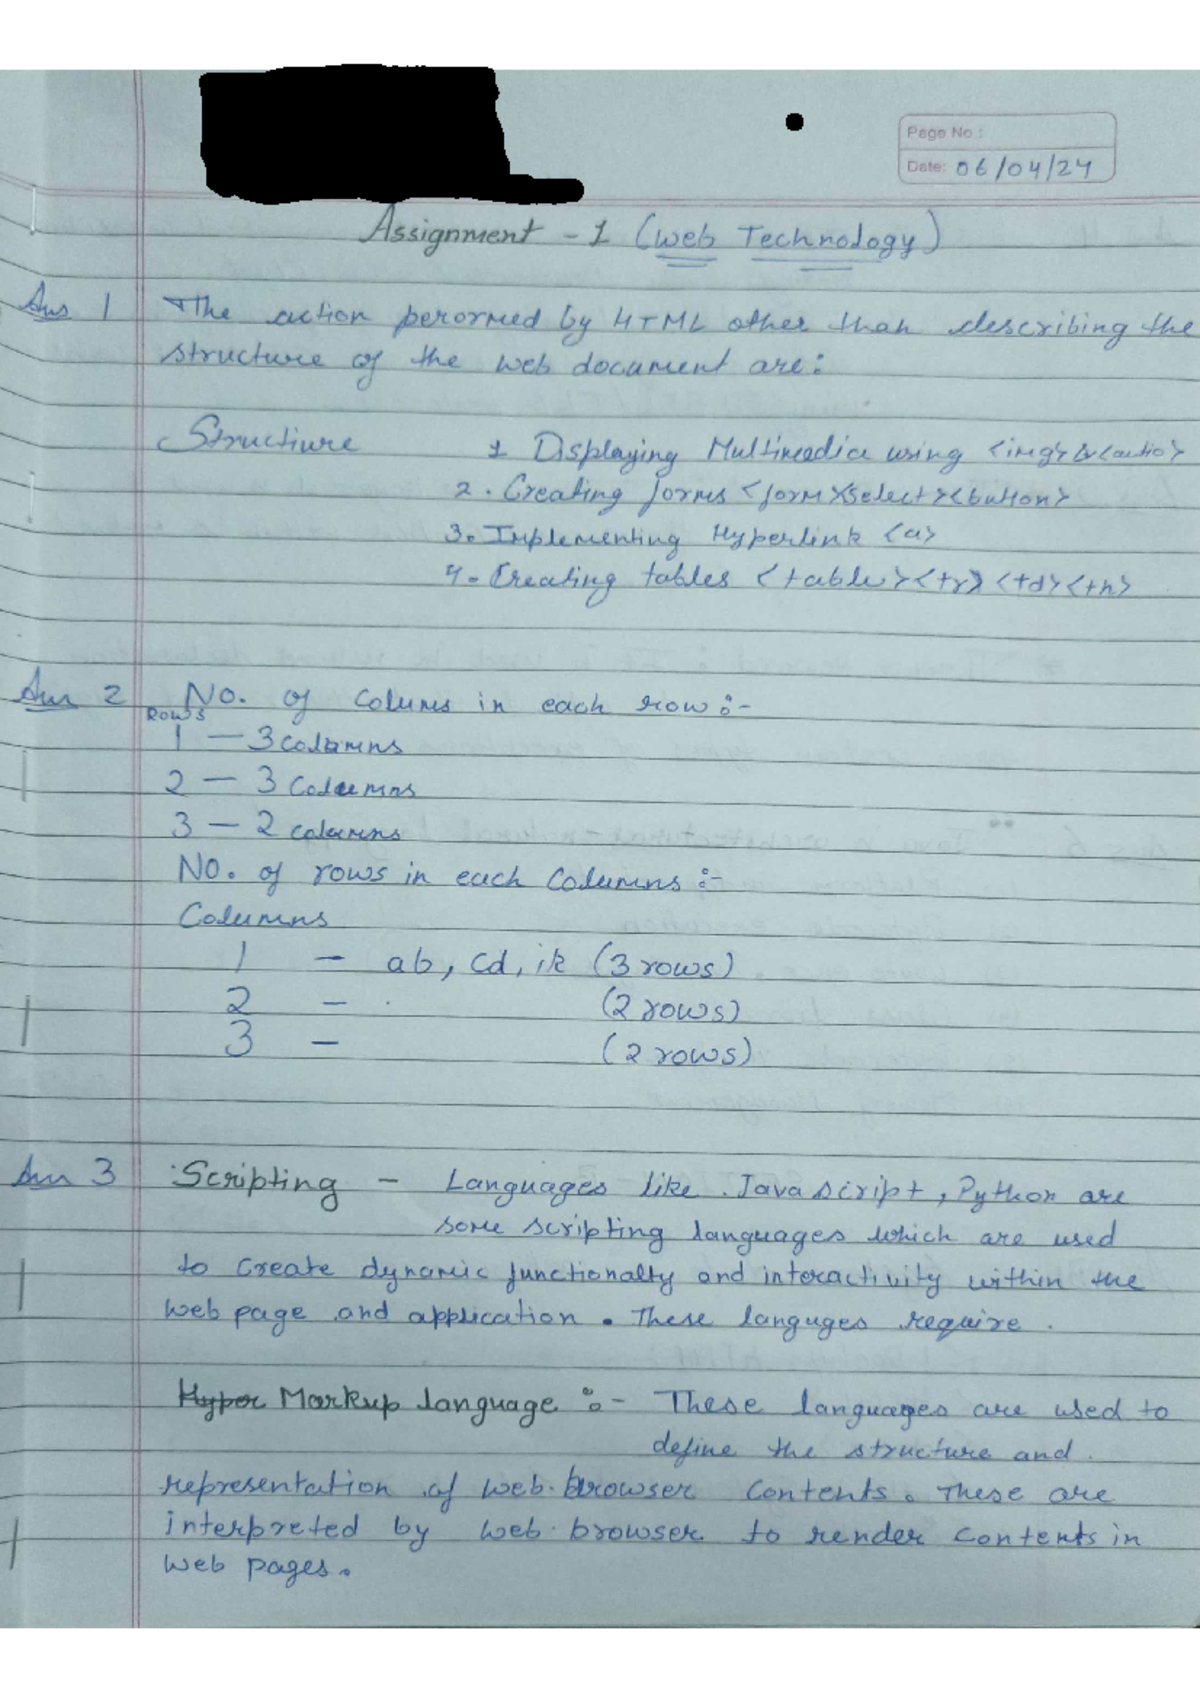 Page No.:
Date: 06/04/24
Assignment - 1 (Web Technology)
Ans 1 The action perormed by HTML other than describing the
structure of the web document are:
Structiure 1 Displaying Multimedia using <img> & <autio>
2. Creating forms <form><select><button>
3. Implementing Hyperlink <a>
4. Creating tables <table><tr><td><th>
Ans 2 No. of Colums in each row :-
Rows
1 — 3 columns
2 — 3 Columns
3 — 2 columns
No. of rows in each Columns :-
Columns
1 - ab, cd, ik (3 rows)
2 - (2 rows)
3 - (2 rows)
Ans 3 Scripting - Languages like Javascript, Python are
some scripting languages which are used
to create dynamic functionalty and interactivity within the
web page and application. These languges require.
Hyper Markup language :- These languages are used to
define the structure and
representation of web browser contents. These are
interpreted by web browser to render contents in
web pages.